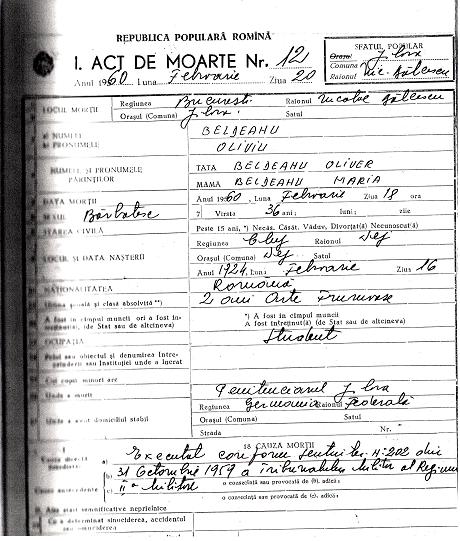 REPUBLICA POPULARA ROMÎNĂ
I. ACT DE MOARTE Nr. 12
Anul 1960 Luna Februarie Ziua 20
SFATUL POPULAR
Oraşu
Comuna Jilava
Raionul Nic. Bălcescu
LOCUL MORŢII
Regiunea Bucureşti Raionul Nicolae Bălcescu
Oraşul (Comuna) Jilava Satul
NUMELE BELDEANU
PRONUMELE OLIVIU
NUMELE ŞI PRONUMELE
PĂRINŢILOR
TATA BELDEANU OLIVER
MAMA BELDEANU MARIA
DATA MORŢII
Anul 1960, Luna Februarie Ziua 18 ora
SEXUL Bărbătesc
7 Vîrsta 36 ani; luni; zile
STAREA CIVILĂ
Peste 15 ani, *) Necăs. Căsăt. Văduv, Divorţat(ă) Necunoscut(ă)
LOCUL ŞI DATA NAŞTERII
Regiunea Cluj Raionul Dej
Oraşul (Comuna) Dej Satul
Anul 1924, Luna Februarie Ziua 16
NAŢIONALITATEA Romînă
Ultima şcoală şi clasă absolvită **) 2 ani Arte Frumoase
A fost în cîmpul muncii ori a fost în-
treţinut(ă), (de Stat sau de altcineva)
*) A fost în cîmpul muncii
A fost întreţinut(ă) (de Stat sau de altcineva)
OCUPAŢIA Student
Felul sau obiectul şi denumirea între-
prinderii sau Instituţiei unde a lucrat
Cîţi copii minori are
Unde a murit Penitenciarul Jilava
Unde a avut domiciliul stabil
Regiunea Germania Raionul Federală
Oraşul (Comuna) Satul
Strada Nr.
18 CAUZA MORŢII
Cauza directă
imediată
a) Executat conform Sentinţei Nr. 202 din
b) 31 Octombrie 1959 a Tribunalului Militar al Regiunii
a consecinţă sau provocată de (b), adică:
Cauze antecedente
c) II-a Militare
a consecinţă sau provocată de (c), adică:
II. Alte stări semnificative nepricinice
Ce a determinat sinuciderea, accidentul
sau omuciderea